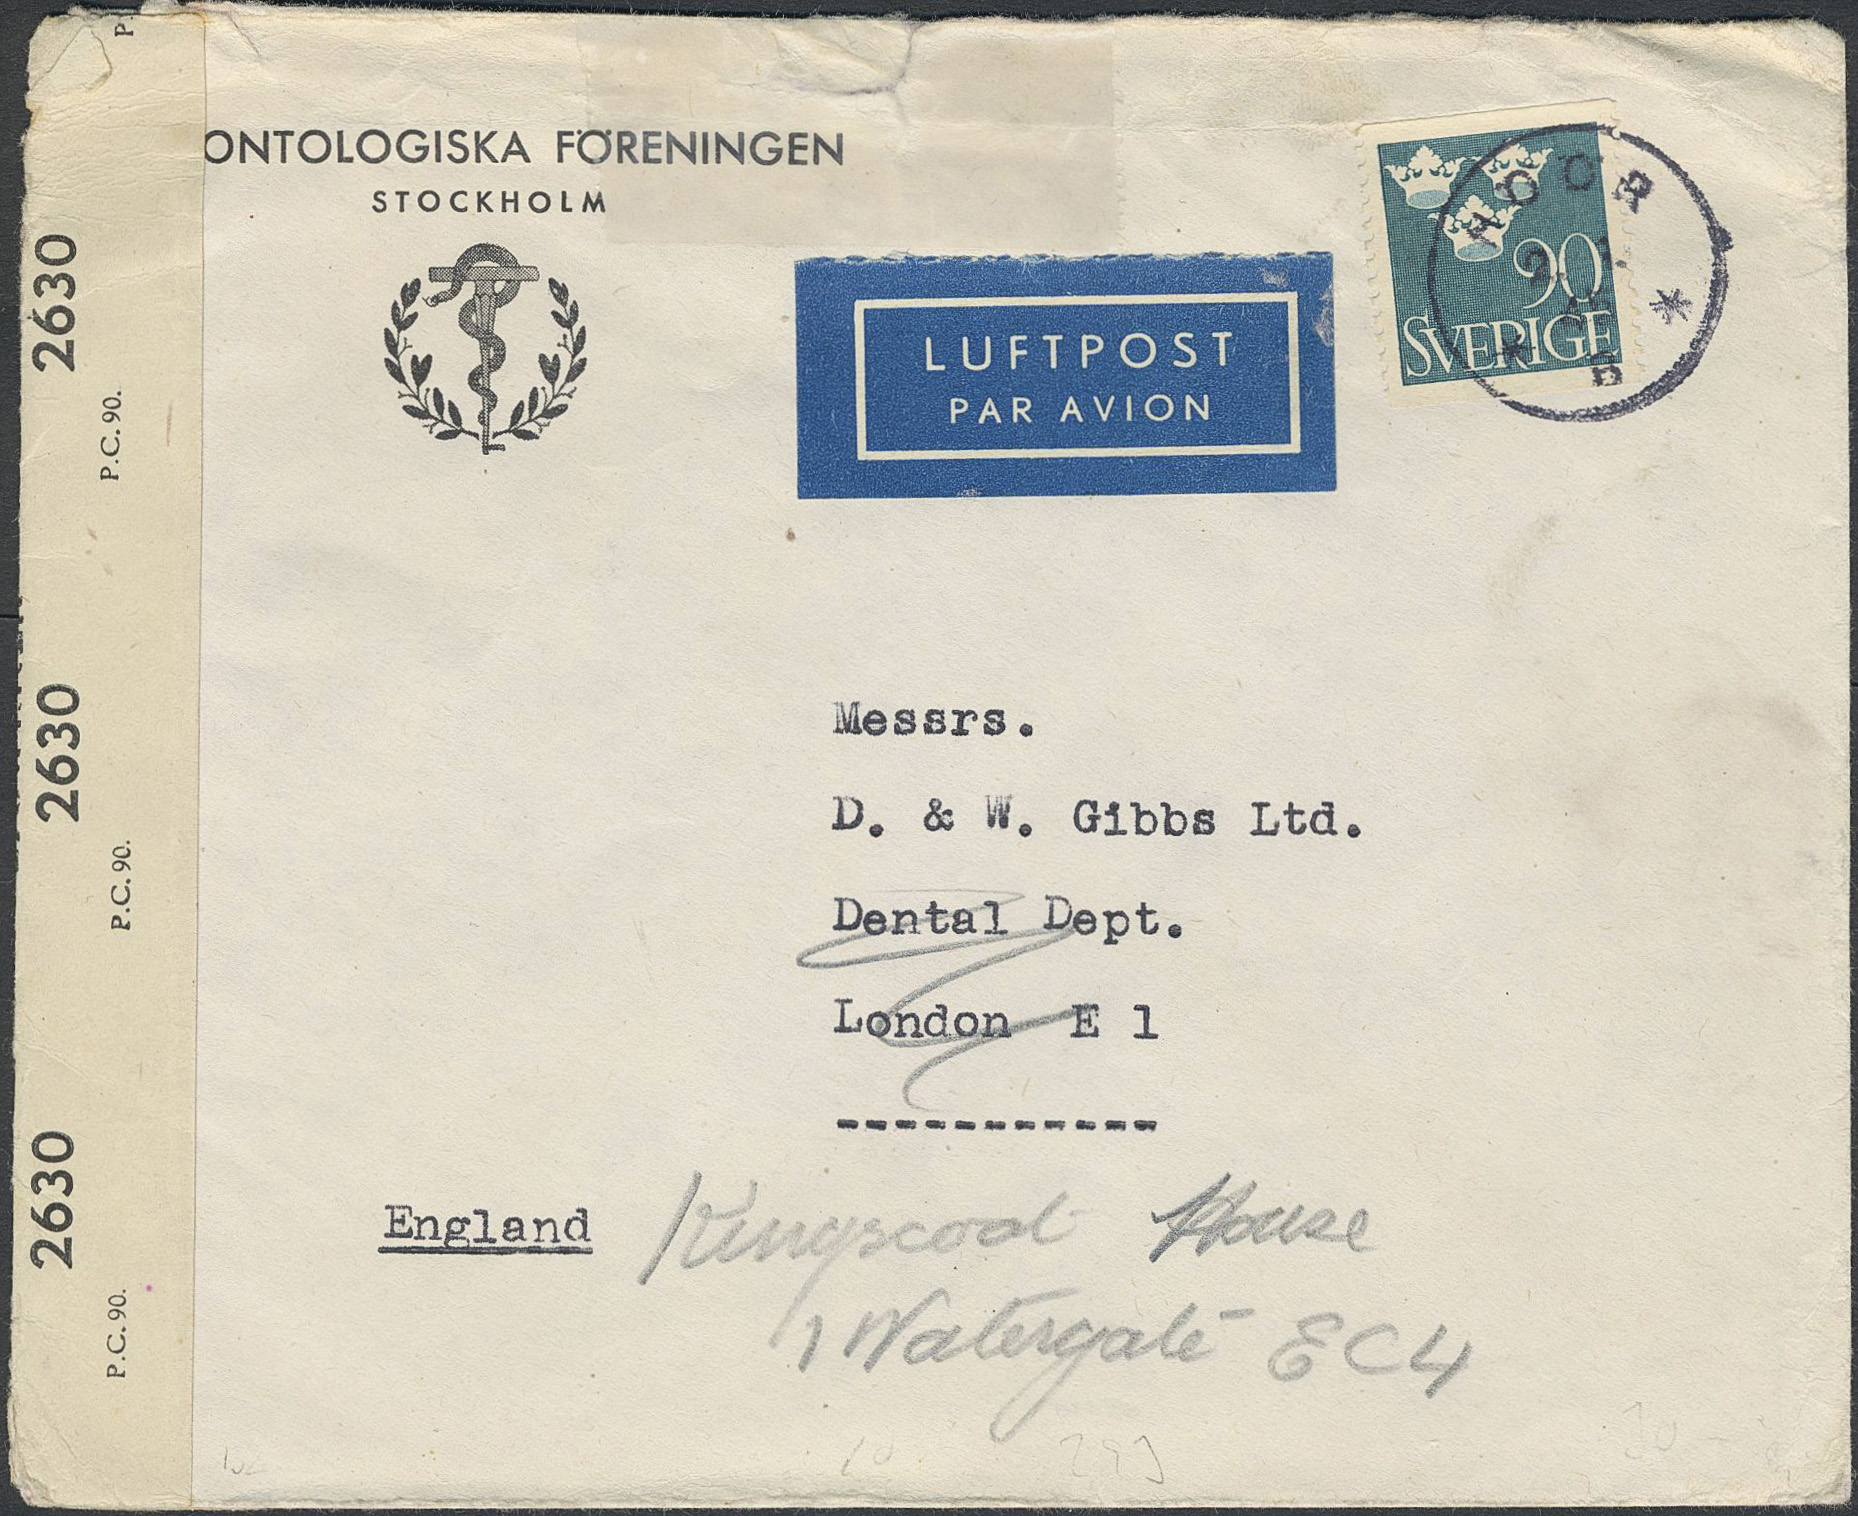 ONTOLOGISKA FÖRENINGEN
STOCKHOLM
LUFTPOST
PAR AVION
90
SVERIGE
2630
P.C. 90.
2630
P.C. 90.
2630
P.C. 90.
Messrs.
D. & W. Gibbs Ltd.
Dental Dept.
London E 1
England
House
1 Watergate EC4